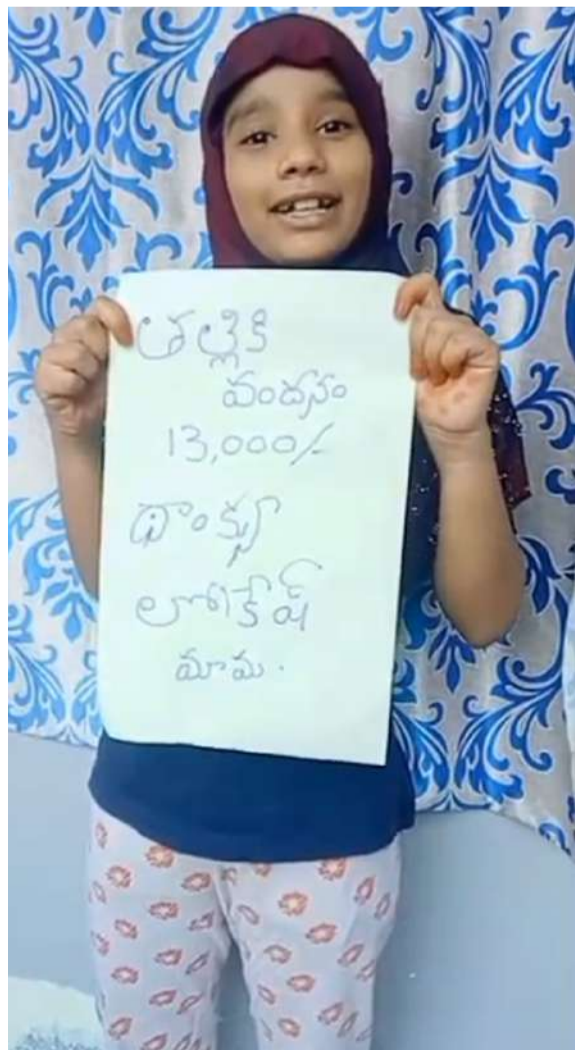 తల్లికి
వందనం
13,000/-
థాంక్యూ
లోకేష్
మామ.